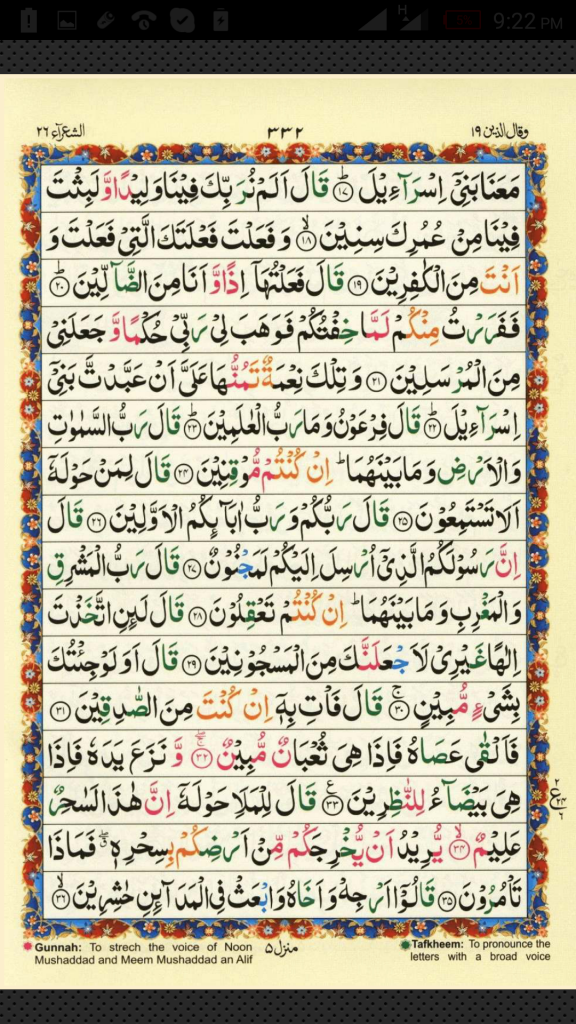 H 5% 9:22 PM
وقال الذین ۱۹ ۳۳۲ الشعرآء ۲۶
مَعَنَا بَنِیْۤ اِسْرَآءِیْلَ ؕ﴿۱۷﴾ قَالَ اَلَمْ نُرَبِّكَ فِیْنَا وَلِیْدًا وَّ لَبِثْتَ
فِیْنَا مِنْ عُمُرِكَ سِنِیْنَ ۙ﴿۱۸﴾ وَ فَعَلْتَ فَعْلَتَكَ الَّتِیْ فَعَلْتَ وَ
اَنْتَ مِنَ الْكٰفِرِیْنَ ﴿۱۹﴾ قَالَ فَعَلْتُهَاۤ اِذًا وَّ اَنَا مِنَ الضَّآلِّیْنَ ؕ﴿۲۰﴾
فَفَرَرْتُ مِنْكُمْ لَمَّا خِفْتُكُمْ فَوَهَبَ لِیْ رَبِّیْ حُكْمًا وَّ جَعَلَنِیْ
مِنَ الْمُرْسَلِیْنَ ﴿۲۱﴾ وَ تِلْكَ نِعْمَةٌ تَمُنُّهَا عَلَیَّ اَنْ عَبَّدْتَّ بَنِیْۤ
اِسْرَآءِیْلَ ؕ﴿۲۲﴾ قَالَ فِرْعَوْنُ وَ مَا رَبُّ الْعٰلَمِیْنَ ؕ﴿۲۳﴾ قَالَ رَبُّ السَّمٰوٰتِ
وَ الْاَرْضِ وَ مَا بَیْنَهُمَا ؕ اِنْ كُنْتُمْ مُّوْقِنِیْنَ ﴿۲۴﴾ قَالَ لِمَنْ حَوْلَهٗۤ
اَلَا تَسْتَمِعُوْنَ ﴿۲۵﴾ قَالَ رَبُّكُمْ وَ رَبُّ اٰبَآىِٕكُمُ الْاَوَّلِیْنَ ﴿۲۶﴾ قَالَ
اِنَّ رَسُوْلَكُمُ الَّذِیْۤ اُرْسِلَ اِلَیْكُمْ لَمَجْنُوْنٌ ﴿۲۷﴾ قَالَ رَبُّ الْمَشْرِقِ
وَ الْمَغْرِبِ وَ مَا بَیْنَهُمَا ؕ اِنْ كُنْتُمْ تَعْقِلُوْنَ ﴿۲۸﴾ قَالَ لَىِٕنِ اتَّخَذْتَ
اِلٰهًا غَیْرِیْ لَاَجْعَلَنَّكَ مِنَ الْمَسْجُوْنِیْنَ ﴿۲۹﴾ قَالَ اَوَ لَوْ جِئْتُكَ
بِشَیْءٍ مُّبِیْنٍ ۚ﴿۳۰﴾ قَالَ فَاْتِ بِهٖۤ اِنْ كُنْتَ مِنَ الصّٰدِقِیْنَ ﴿۳۱﴾
فَاَلْقٰى عَصَاهُ فَاِذَا هِیَ ثُعْبَانٌ مُّبِیْنٌ ۚۖ﴿۳۲﴾ وَّ نَزَعَ یَدَهٗ فَاِذَا
هِیَ بَیْضَآءُ لِلنّٰظِرِیْنَ ﴿۳۳﴾ قَالَ لِلْمَلَاِ حَوْلَهٗۤ اِنَّ هٰذَا لَسٰحِرٌ
عَلِیْمٌ ۙ﴿۳۴﴾ یُّرِیْدُ اَنْ یُّخْرِجَكُمْ مِّنْ اَرْضِكُمْ بِسِحْرِهٖ ۖۗ فَمَا ذَا
تَاْمُرُوْنَ ﴿۳۵﴾ قَالُوْۤا اَرْجِهْ وَ اَخَاهُ وَ ابْعَثْ فِی الْمَدَآىِٕنِ حٰشِرِیْنَ ۙ﴿۳۶﴾
Gunnah: To strech the voice of Noon
Mushaddad and Meem Mushaddad an Alif
منزل ۵
Tafkheem: To pronounce the
letters with a broad voice